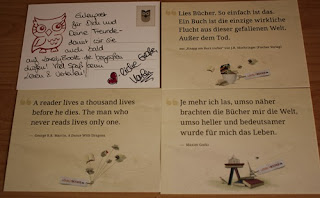 für Dich und
Deine Freunde -
damit wir sie
auch bald
auf LovelyBooks begrüßen
dürfen! Viel Spaß beim
Lesen & Verteilen!
Liebe Grüße,
Lies Bücher. So einfach ist das.
Ein Buch ist die einzige wirkliche
Flucht aus dieser gefallenen Welt.
Außer dem Tod.
A reader lives a thousand lives
before he dies. The man who
never reads lives only one.
— George R.R. Martin, A Dance With Dragons
Je mehr ich las, umso näher
brachten die Bücher mir die Welt,
umso heller und bedeutsamer
wurde für mich das Leben.
— Maxim Gorki